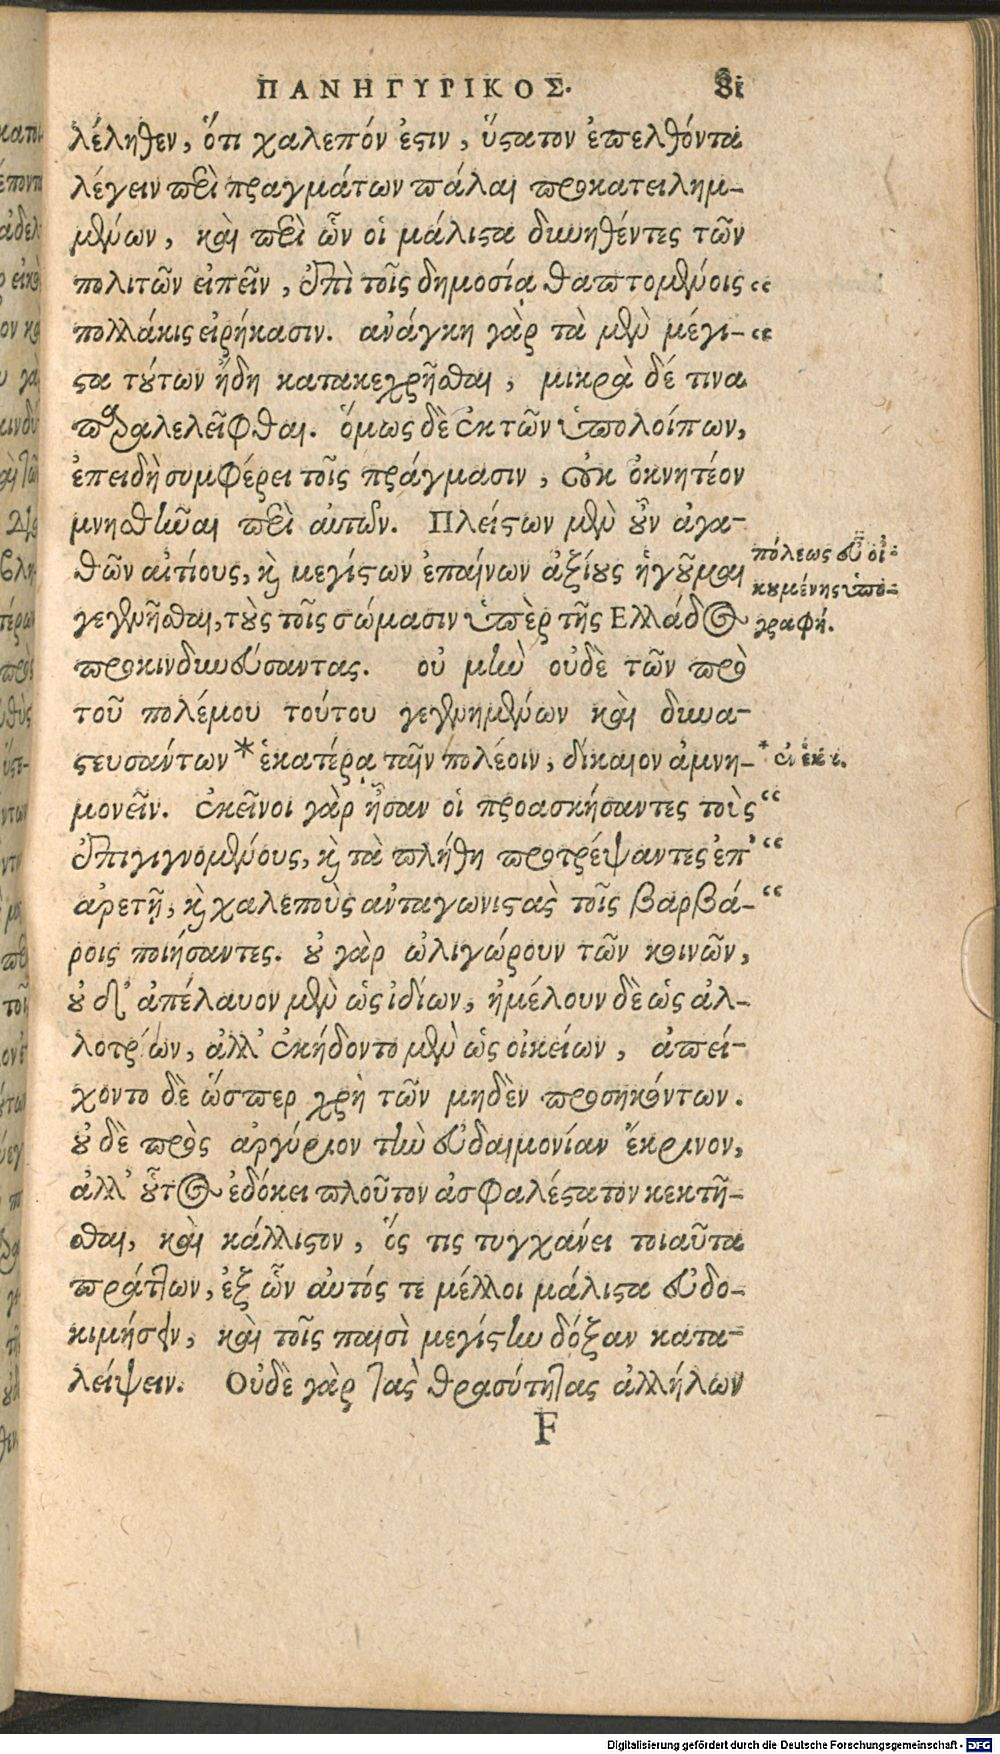 ΠΑΝΗΓΥΡΙΚΟΣ. 81
λέληθεν, ὅτι χαλεπόν ἐϛιν, ὕϛατον ἐπελθόντα
λέγειν περὶ πραγμάτων πάλαι προκατειλημ-
μένων, καὶ περὶ ὧν οἱ μάλιϛα δυνηθέντες τῶν
πολιτῶν εἰπεῖν, ἐπὶ τοῖς δημοσίᾳ θαπτομένοις “
πολλάκις εἰρήκασιν. ἀνάγκη γὰρ τὰ μὲν μέγι- “
ϛα τȣ́των ἤδη κατακεχρῆσθαι, μικρὰ δέ τινα
παραλελεῖφθαι. ὅμως δὲ ἐκ τῶν ὑπολοίπων,
ἐπειδὴ συμφέρει τοῖς πράγμασιν, οὐκ ὀκνητέον
μνησθῆναι περὶ αὐτῶν. Πλείϛων μὲν ȣ̓͂ν ἀγα-
θῶν αἰτίους, καὶ μεγίϛων ἐπαίνων ἀξίȣς ἡγȣ͂μαι
γεγενῆσθαι, τȣ̀ς τοῖς σώμασιν ὑπὲρ τῆς Ελλάδος
προκινδυνεύσαντας. οὐ μὴν οὐδὲ τῶν πρὸ
τοῦ πολέμου τούτου γεγενημένων καὶ δυνα-
ϛευσάντων * ἑκατέρᾳ ταῖν πολέοιν, δίκαιον ἀμνη-
μονεῖν. ἐκεῖνοι γὰρ ἦσαν οἱ προασκήσαντες τοὺς “
ἐπιγιγνομένους, καὶ τὰ πλήθη προτρέψαντες ἐπ’ “
ἀρετῇ, καὶ χαλεποὺς ἀνταγωνιϛὰς τοῖς βαρβά- “
ροις ποιήσαντες. ȣ̓ γὰρ ὠλιγώρουν τῶν κοινῶν,
ȣ̓δ’ ἀπέλαυον μὲν ὡς ἰδίων, ἠμέλουν δὲ ὡς ἀλ-
λοτρίων, ἀλλ’ ἐκήδοντο μὲν ὡς οἰκείων, ἀπεί-
χοντο δὲ ὥσπερ χρὴ τῶν μηδὲν προσηκόντων.
ȣ̓δὲ πρὸς ἀργύριον τὴν εὐδαιμονίαν ἔκρινον,
ἀλλ’ ȣ̓͂τος ἐδόκει πλοῦτον ἀσφαλέϛατον κεκτῆ-
σθαι, καὶ κάλλιϛον, ὅς τις τυγχάνει τοιαῦτα
πράττων, ἐξ ὧν αὐτός τε μέλλοι μάλιϛα εὐδο-
κιμήσειν, καὶ τοῖς παισὶ μεγίϛην δόξαν κατα-
λείψειν. Οὐδὲ γὰρ τὰς θρασύτητας ἀλλήλων
F
πόλεως εὖ οἰ-
κȣμένης ὑπο-
γραφή.
* ἐν ἑκ
Digitalisierung gefördert durch die Deutsche Forschungsgemeinschaft - DFG